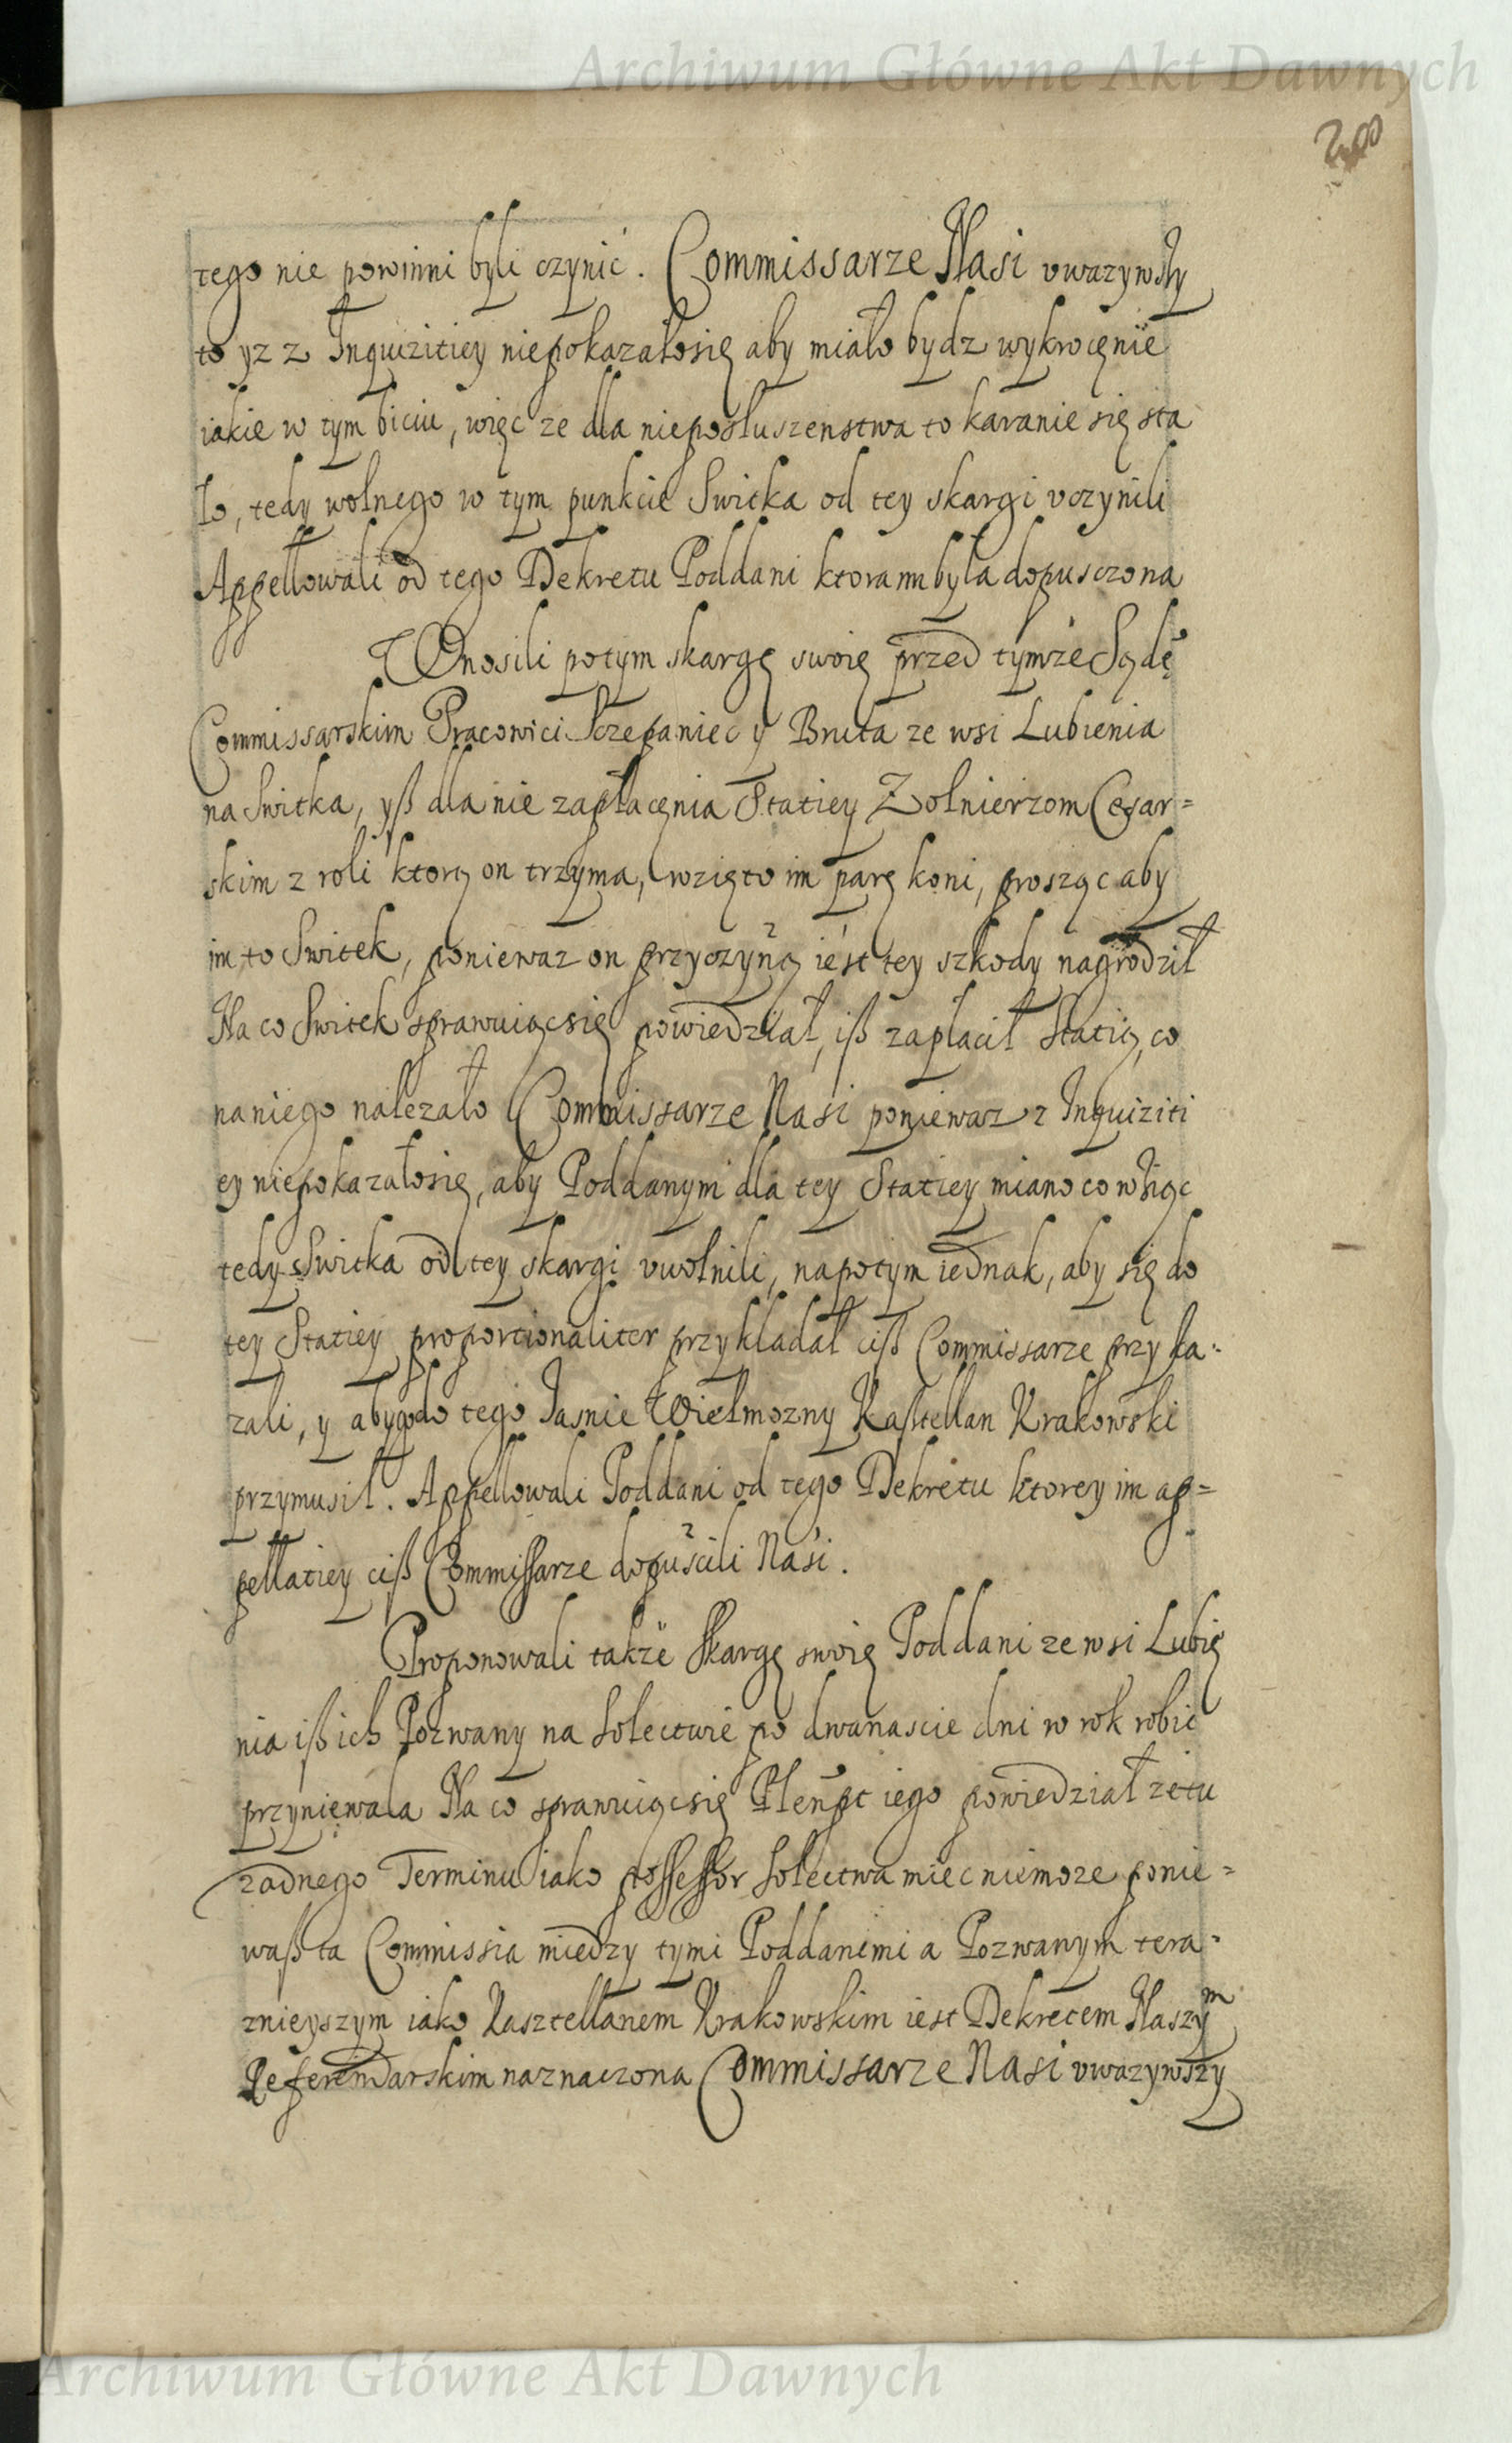 Archiwum Główne Akt Dawnych
200
tego nie powinni byli czynić. Commissarze Nasi vwazywszy
to yz z Inquizitiey niepokazałosię aby miało bydz wykrocęnie
iakie w tym biciu, więc ze dla nieposłuszenstwa to karanie się sta
ło, tedy wolnego w tym punkcie Switka od tey skargi vczynili
Appellowali od tego Dekretu Poddani ktora im była dopusczona
Wnosili potym skargę swoię przed tymże Sądē
Commissarskim Pracowici Sczepaniec y Bruta ze wsi Lubienia
na Switka, yß dla nie zapłacęnia Statiey Zołnierzom Cesar=
skim z roli ktorą on trzyma, wzięto im parę koni, prosząc aby
im to Switek, poniewaz on przyczyną iest tey szkody nagrodził
Na co Switek sprawuiącsię powiedział, iß zapłacił Statią, co
naniego nalezało Commissarze Nasi poniewaz z Inquiziti
ey niepokazałosię, aby Poddanym dla tey Statiey miano co wsiąc
tedy Switka od tey skargi vwolnili, napotym iednak, aby się do
tey Statiey proportionaliter przykładał ciß Commissarze przyka=
zali, y aby go do tego Jasnie Wielmozny Kasztellan Krakowski
przymusił. Appellowali Poddani od tego Dekretu ktorey im ap=
pellatiey ciß Commissarze dopuścili Nasi.
Proponowali takze Skargę swoię Poddani ze wsi Lubię
nia iß ich Pozwany na Solectwie po dwanascie dni w rok robić
przyniewala Na co sprawuiącsię Plenpt iego powiedział ze tu
zadnego Terminu iako possessor Solectwa miec niemoze ponie=
waß ta Commissia miedzy tymi Poddanemi a Pozwanym tera=
znieyszym iako Kasztellanem Krakowskim iest Dekretem Naszym
Referendarskim naznaczona Commissarze Nasi vwazywszy
Archiwum Główne Akt Dawnych